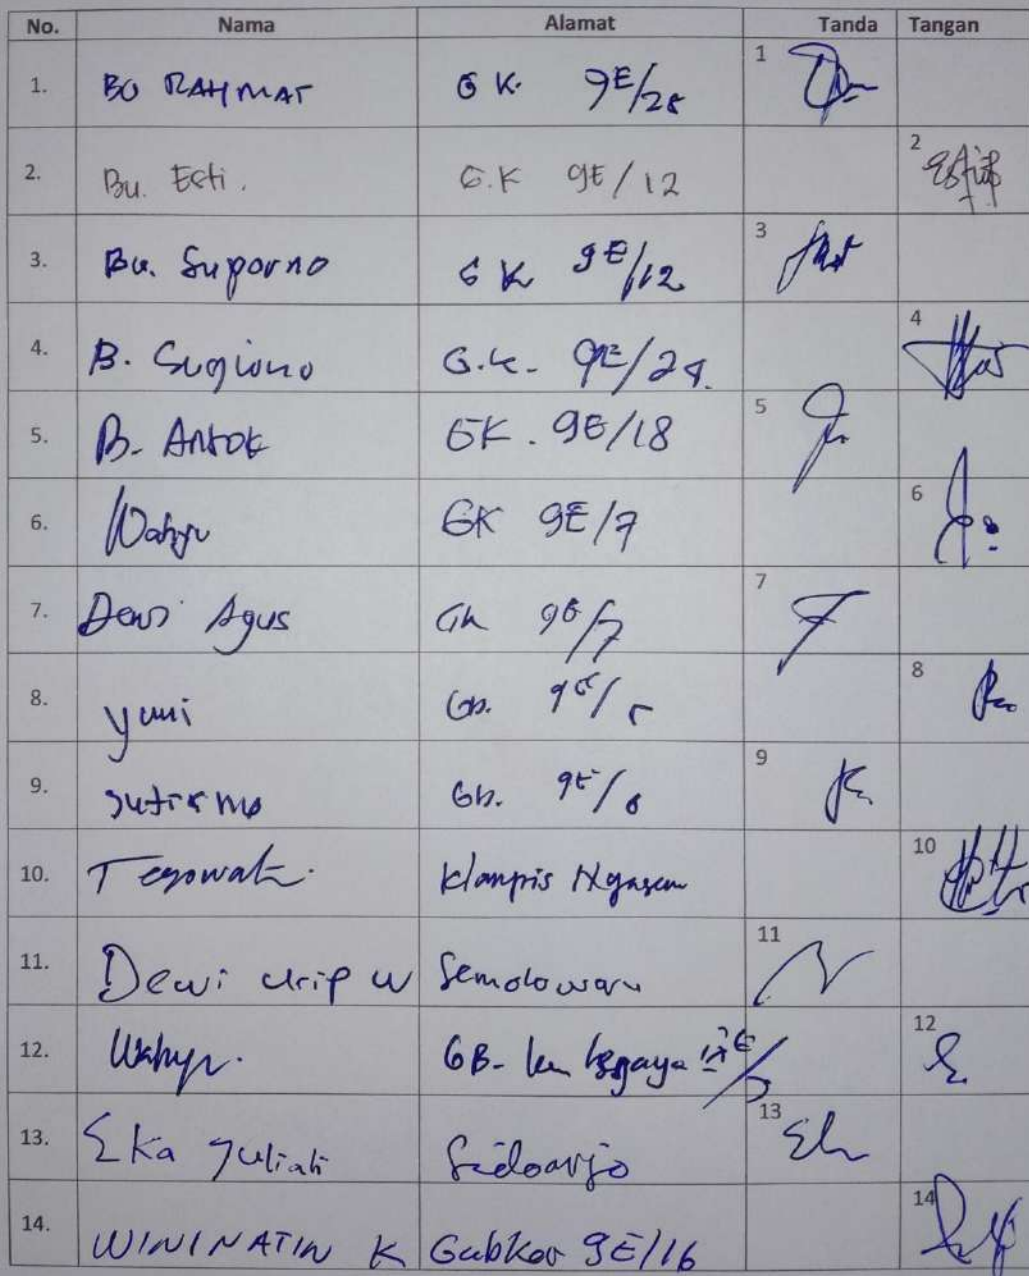 No. Nama Alamat Tanda Tangan
1. BU RAHMAT G K. 9E/28 1
2. Bu. Esti. G.K 9E/12 2
3. Bu. Suporno G K 9E/12 3
4. B. Sugiono G.K. 9E/24. 4
5. B. Antok GK. 9E/18 5
6. Wahyu GK 9E/7 6
7. Dewi Agus Gk 9E/7 7
8. Yuni Gb. 9E/5 8
9. Sutrisno Gb. 9E/6 9
10. Klampis Ngasem 10
11. Dewi Urip W Semolowaru 11
12. Wahyu. GB- 12
13. Eka Yuliati Sidoarjo 13
14. WININATIN K Gubkor 9E/16 14